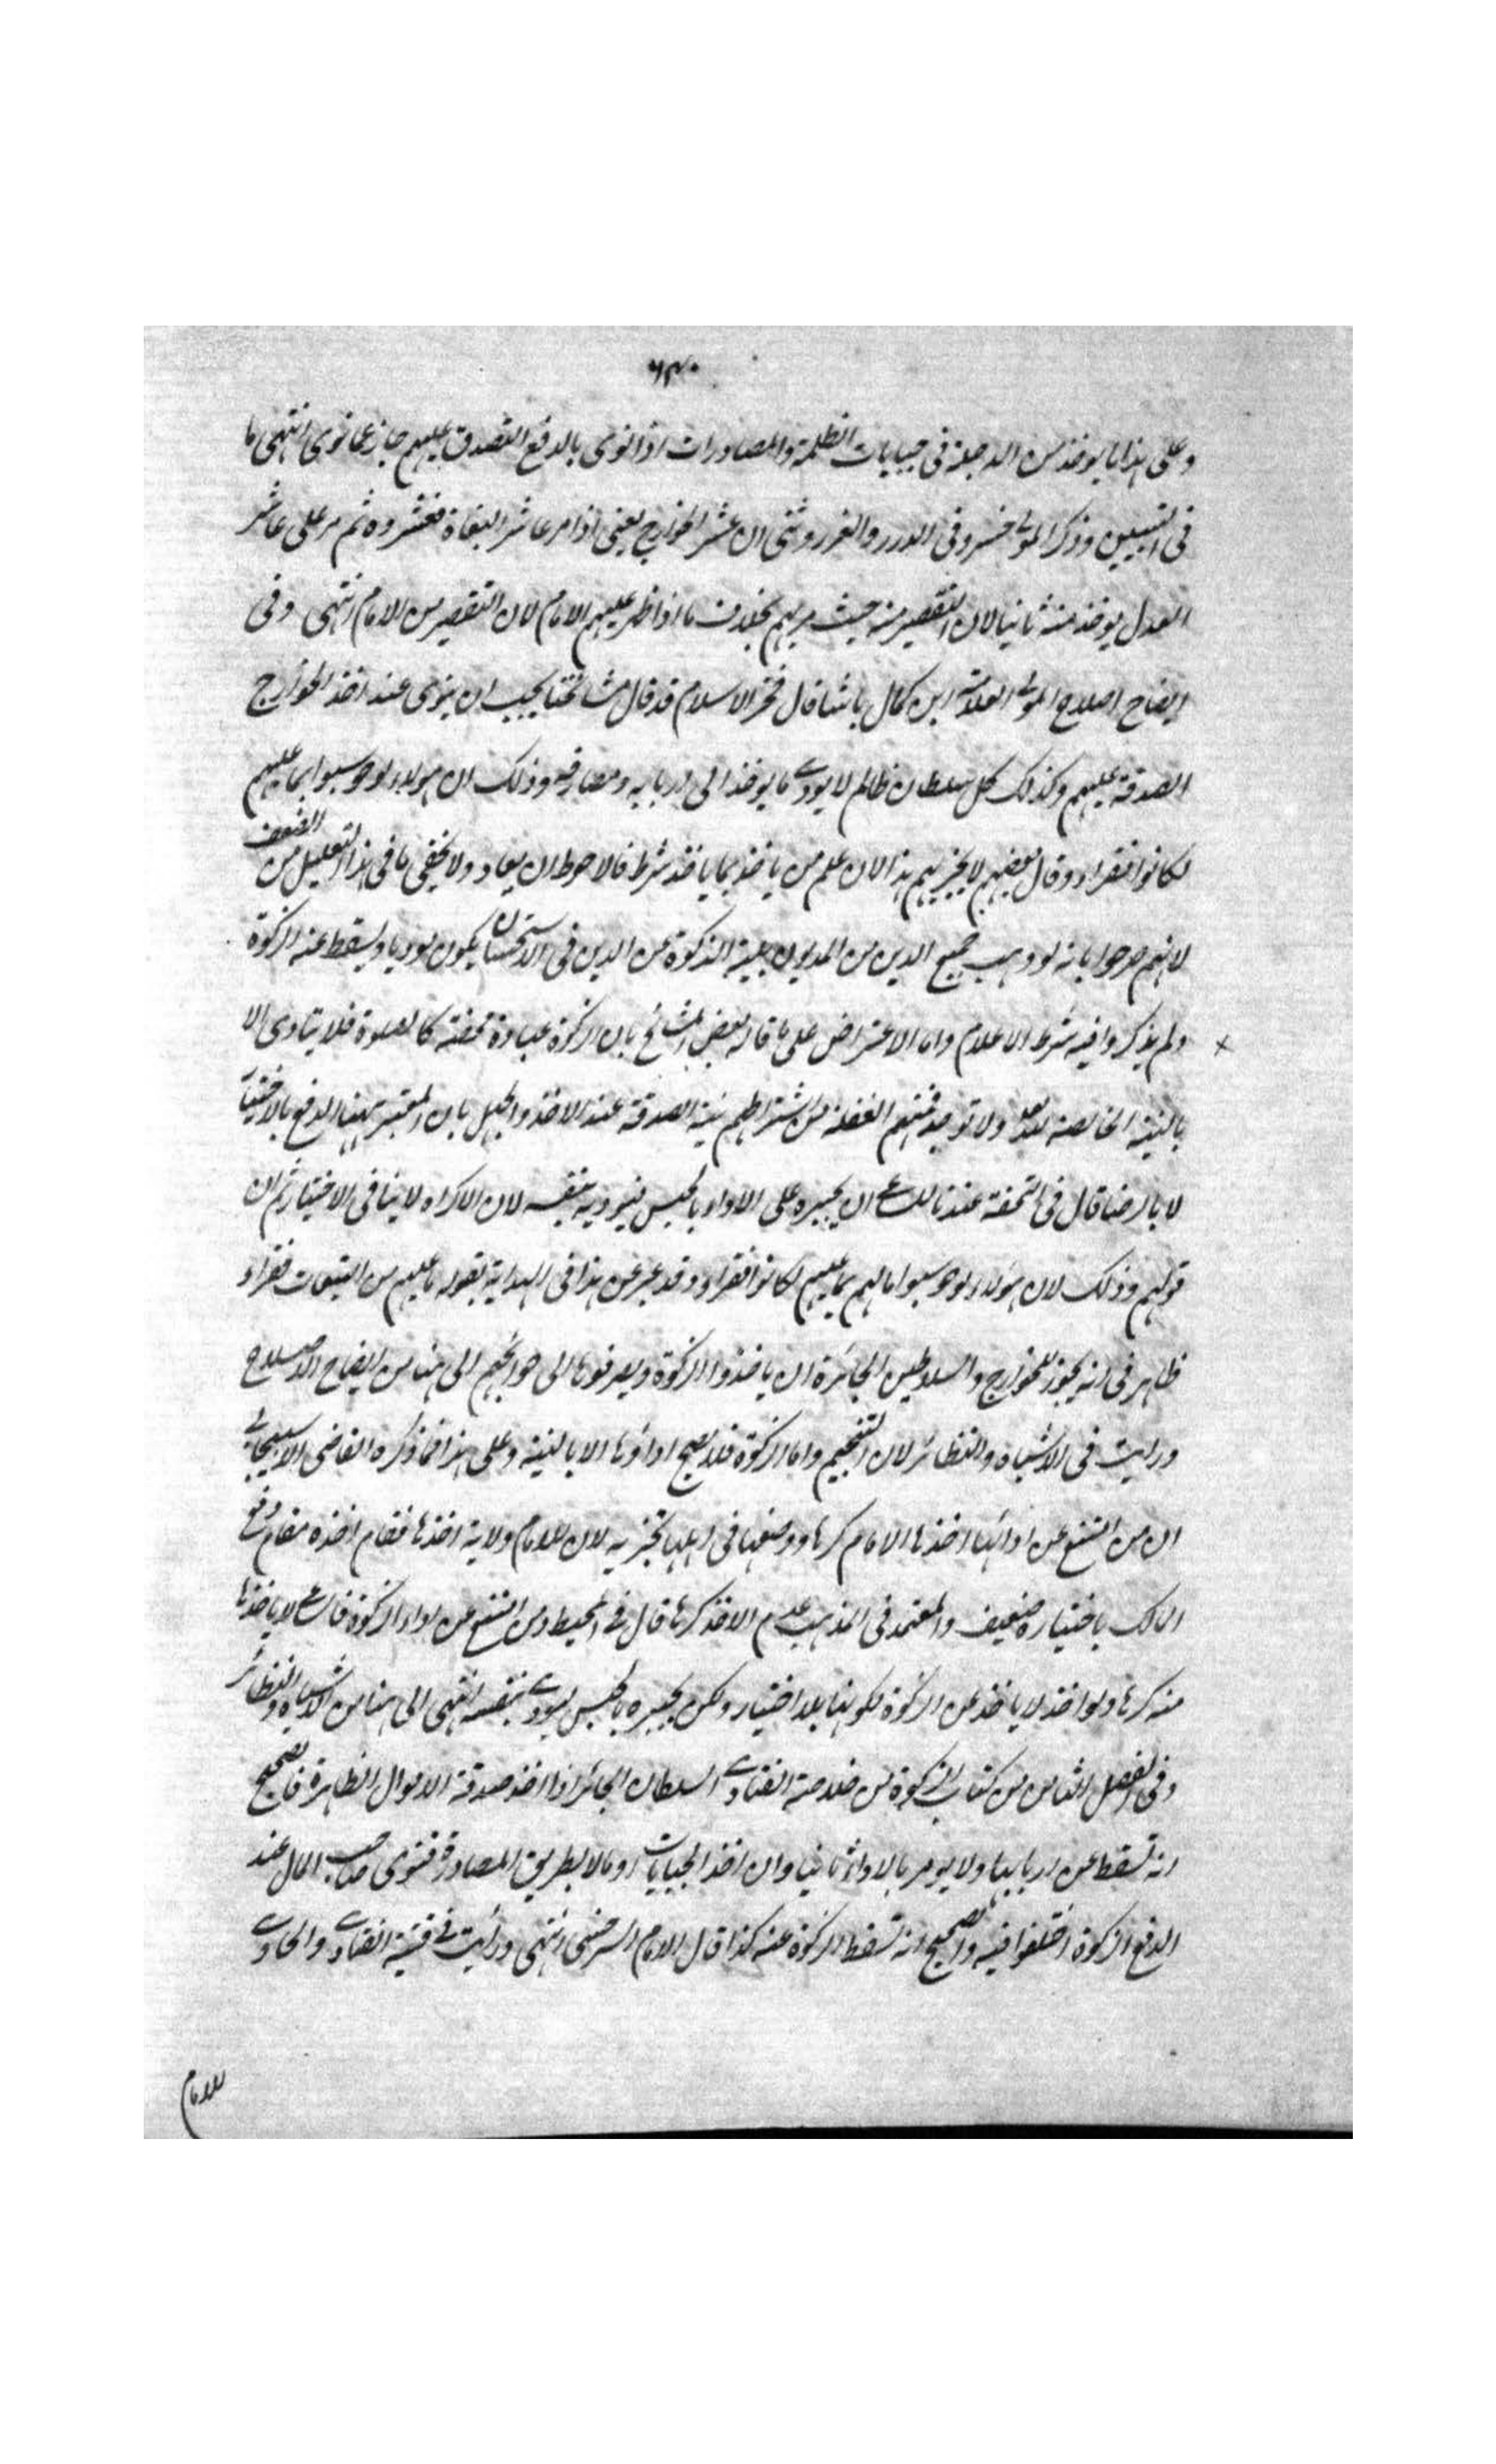 ۶۳۰
وعلى هذا ما يوخذ من الرجل فى جبايات الظلمة والمصادرات اذا نوى بالدفع التصدق عليهم جاز عما نوى انتهى ما
فى التبيين وذكر المولى خسرو فى الدرر والغرر وثنى ان عشر الخوارج يعنى اذا مر عاشر البغاة فعشروه ثم مر على عاشر
العدل يوخذ منه ثانيا لان التقصير منه حيث مر بهم بخلاف ما اذا ظهر عليهم الامام لان التقصير من الامام انتهى وفى
ايضاح اصلاح المولى العلامة ابن كمال باشا قال فخر الاسلام قد قال مشائخنا يجب ان ينوى عند اخذ الخوارج
الصدقة عليهم وكذلك كل سلطان ظالم لا يودى ما يوخذ الى اربابه ومصارفه وذلك ان هولاء لو حوسبوا بما عليهم
لكانوا فقراء وقال بعضهم لا يجزيهم هذا لان علم من ياخذ بما ياخذ شرط فالاحوط ان يعاد ولا يخفى ما فى هذا التعليل من الضعف
لانهم صرحوا بانه لو وهب جميع الدين من المديون بنية الزكوة عن الدين فى الاستحسان يكون موديا ويسقط عنه الزكوة
ولم يذكروا فيه شرط الاعلام واما الاعتراض على ما قاله بعض المشائخ بان الزكوة عبادة محضة كالصلوة فلا يتادى الا
بالنية الخالصة لله ولا توجد فمنهم الغفلة من اشتراطهم نية الصدقة عند الاخذ والجهل بان المعتبر ههنا الدفع بالاختيار
لا بالرضا قال فى التحفة عندنا للساعى ان يجبره على الاداء بالحبس فيوديه بنفسه لان الاكراه لا ينافى الاختيار ثم ان
قولهم وذلك لان هولاء لو حوسبوا مالهم بما عليهم لكانوا فقراء وقد عبر عن هذا فى الهداية بقوله بما عليهم من التبعات فقراء
ظاهر فى انه يجوز للخوارج والسلاطين الجائرة ان ياخذوا الزكوة ويصرفونها الى حوائجهم الى هنا من ايضاح الاصلاح
ورايت فى الاشباه والنظائر لابن النجيم واما الزكوة فلا يصح اداؤها الا بالنية وعلى هذا فما ذكره القاضى الاسبيجابى
ان من امتنع عن ادائها اخذها الامام كرها ووضعها فى اهلها تجزيه لان للامام ولاية اخذها فقام اخذه مقام دفع
المالك باختياره ضعيف والمعتمد فى المذهب عدم الاخذ كرها قال فى المحيط ومن امتنع من اداء الزكوة فالساعى لا ياخذها
منه كرها ولو اخذ لا ياخذ عن الزكوة لكونها بلا اختيار ولكن يجبره بالحبس ليودى بنفسه انتهى الى هنا من الاشباه والنظائر
وفى الفصل الثامن من كتاب الزكوة من خلاصة الفتاوى السلطان الجائر اذا اخذ صدقة الاموال الظاهرة فالصحيح
انه تسقط عن اربابها ولا يومر بالاداء ثانيا وان اخذ الجبايات او مالا بطريق المصادرة فنوى صاحب المال عند
الدفع الزكوة اختلفوا فيه والصحيح انه تسقط الزكوة عنه كذا قال الامام السرخسى انتهى ورايت فى قنية الفتاوى والحاوى
للامام